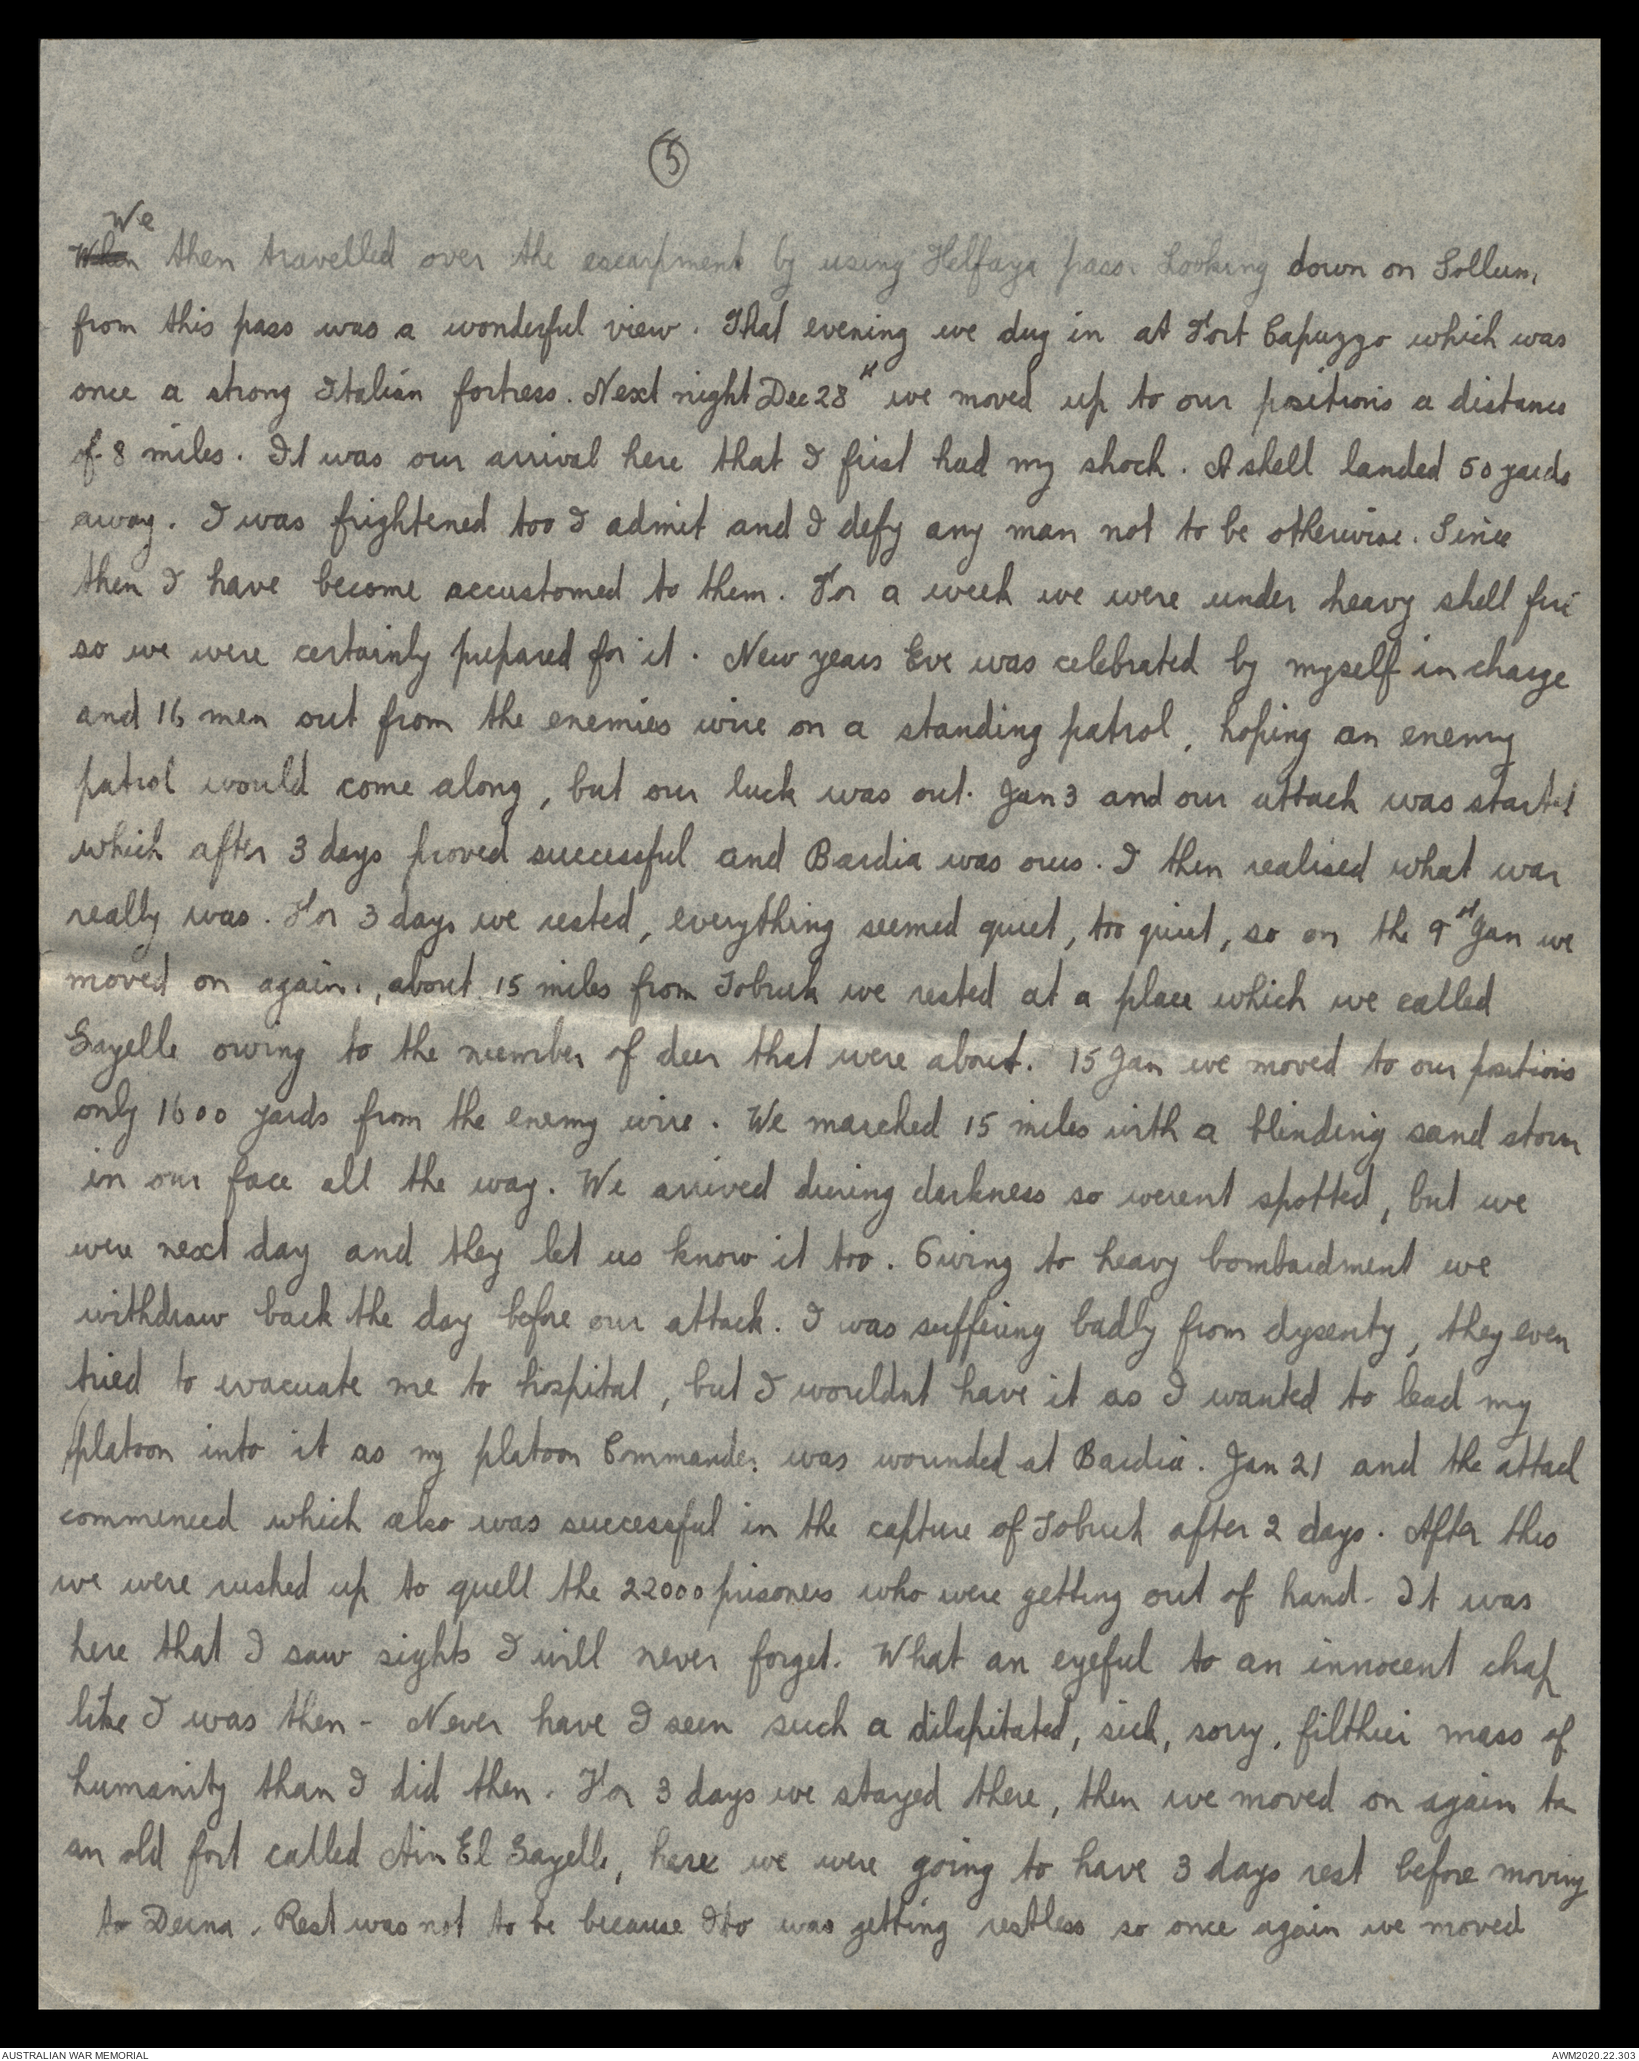 5
We
When then travelled over the escarpment by using Helfaya pass. Looking down on Sollum,
from this pass was a wonderful view. That evening we dug in at Fort Capuzzo which was
once a strong Italian fortress. Next night Dec 28th we moved up to our positions a distance
of 8 miles. It was our arrival here that I first had my shock. A shell landed 50 yards
away. I was frightened too I admit and I defy any man not to be otherwise. Since
then I have become accustomed to them. For a week we were under heavy shell fire
so we were certainly prepared for it. New years Eve was celebrated by myself in charge
and 16 men out from the enemies wire on a standing patrol, hoping an enemy
patrol would come along, but our luck was out. Jan 3 and our attack was started
which after 3 days proved successful and Bardia was ours. I then realised what war
really was. For 3 days we rested, everything seemed quiet, too quiet, so on the 9th Jan we
moved on again., about 15 miles from Tobruk we rested at a place which we called
Gazelle owing to the number of deer that were about. 15 Jan we moved to our positions
only 1600 yards from the enemy wire. We marched 15 miles with a blinding sand storm
in our face all the way. We arrived during darkness so werent spotted, but we
were next day and they let us know it too. Owing to heavy bombardment we
withdraw back the day before our attack. I was suffering badly from dysenty, they even
tried to evacuate me to hospital, but I wouldnt have it as I wanted to lead my
platoon into it as my platoon Commander was wounded at Bardia. Jan 21 and the attack
commenced which also was successful in the capture of Tobruk after 2 days. After this
we were rushed up to quell the 22000 prisoners who were getting out of hand. It was
here that I saw sights I will never forget. What an eyeful to an innocent chap
like I was then - Never have I seen such a dilapitated, sick, sorry, filthier mass of
humanity than I did then. For 3 days we stayed there, then we moved on again to
an old fort called Ain El Gazelle, here we were going to have 3 days rest before moving
to Derna. Rest was not to be because Ito was getting restless so once again we moved
AUSTRALIAN WAR MEMORIAL
AWM2020.22.303